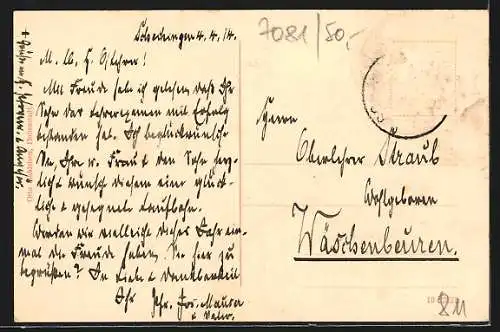 Schechingen 4.4.14.
7081/50,-
M. lb. H. Oberlehrer!
Mit Freude hab ich gelesen daß Ihr
Sohn das Lehrerexamen mit Erfolg
bestanden hat. Ich beglückwünsche
Sie, Ihre w. Frau & den Sohn herz-
lich & wünsch diesem eine glück-
lich & gesegnete Laufbahn.
Werden wir vielleicht dieses Jahr ein-
mal die Freude haben, Sie hier zu
begrüßen? In Liebe & Dankbarkeit
Ihr Jos. Maurer
Herrn
Oberlehrer Straub
Wohlgeboren
Wäschenbeuren.
811